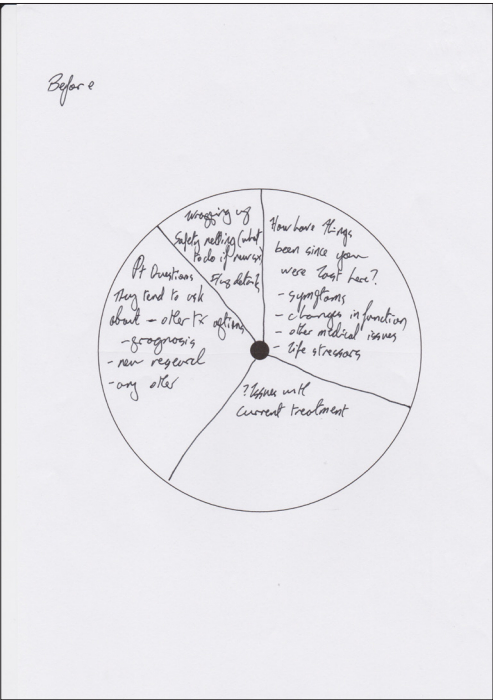 Before
Wrapping up
Safety netting (what
to do if worse)
F/up details
How have things
been since you
were last here?
- symptoms
- changes in function
- other medical issues
- life stressors
? Issues with
current treatment
Pt Questions
They tend to ask
about - other tx options
- prognosis
- new research
- any other